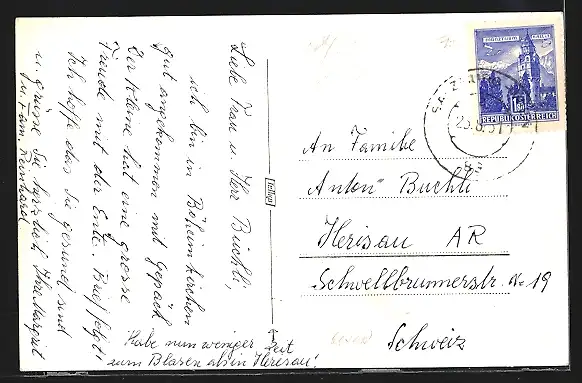 Liebe Frau u. Herr Büchli,
ich bin in Böheimkirchen
gut angekommen mit Gepäck
Der Kleine hat eine grosse
Freude mit der Ente. Brief folgt!
Ich hoffe das Sie gesund sind
u. grüsse Sie herzlich Ihre Margrit
Reinhard
Habe nun weniger Zeit
zum Blasen als in Herisau!
An Familie
Anton Büchli
Herisau AR
Schwellbrunnerstr. 19
Schweiz
REPUBLIK ÖSTERREICH